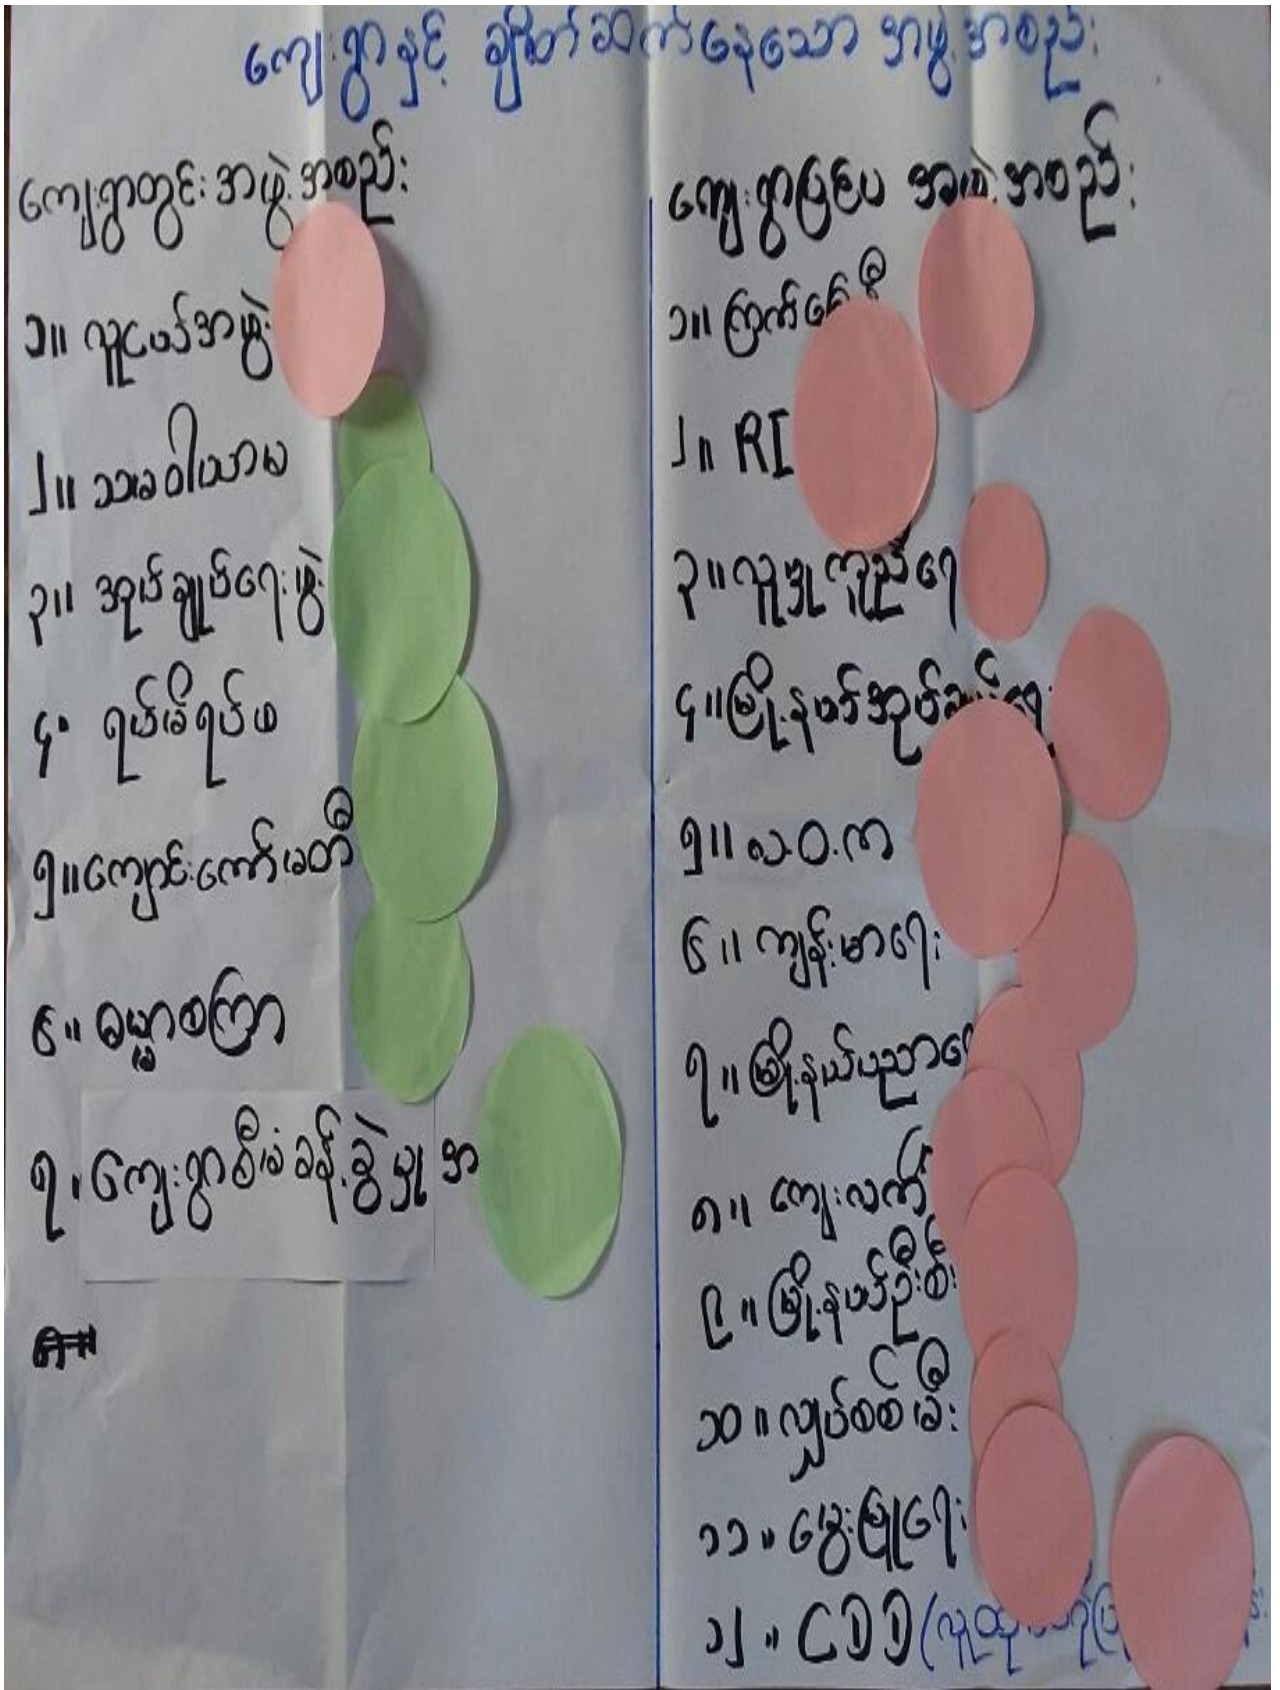 ကျေးရွာနှင့် ချိတ်ဆက်နေသော အဖွဲ့အစည်း
ကျေးရွာတွင်း အဖွဲ့အစည်း
၁။ လူငယ်အဖွဲ့
၂။ သမဝါယာမ
၃။ အုပ်ချုပ်ရေးဖွဲ့
၄။ ရပ်မိရပ်ဖ
၅။ ကျောင်းကော်မတီ
၆။ ဓမ္မာစကြာ
၇။ ကျေးရွာစီမံခန့်ခွဲမှု အ
ကျေးရွာပြင်ပ အဖွဲ့အစည်း
၁။ ကြက်ခြေနီ
၂။ RI
၃။ လူမှုကူညီရေ
၄။ မြို့နယ်အုပ်ချုပ်ရေး
၅။ လ.ဝ.က
၆။ ကျန်းမာရေး
၇။ မြို့နယ်ပညာရေ
၈။ ကျေးလက်
၉။ မြို့နယ်ဦးစီး
၁၀။ လျှပ်စစ်မီး
၁၁။ မွေးမြူရေး
၁၂။ CDD (လူထု